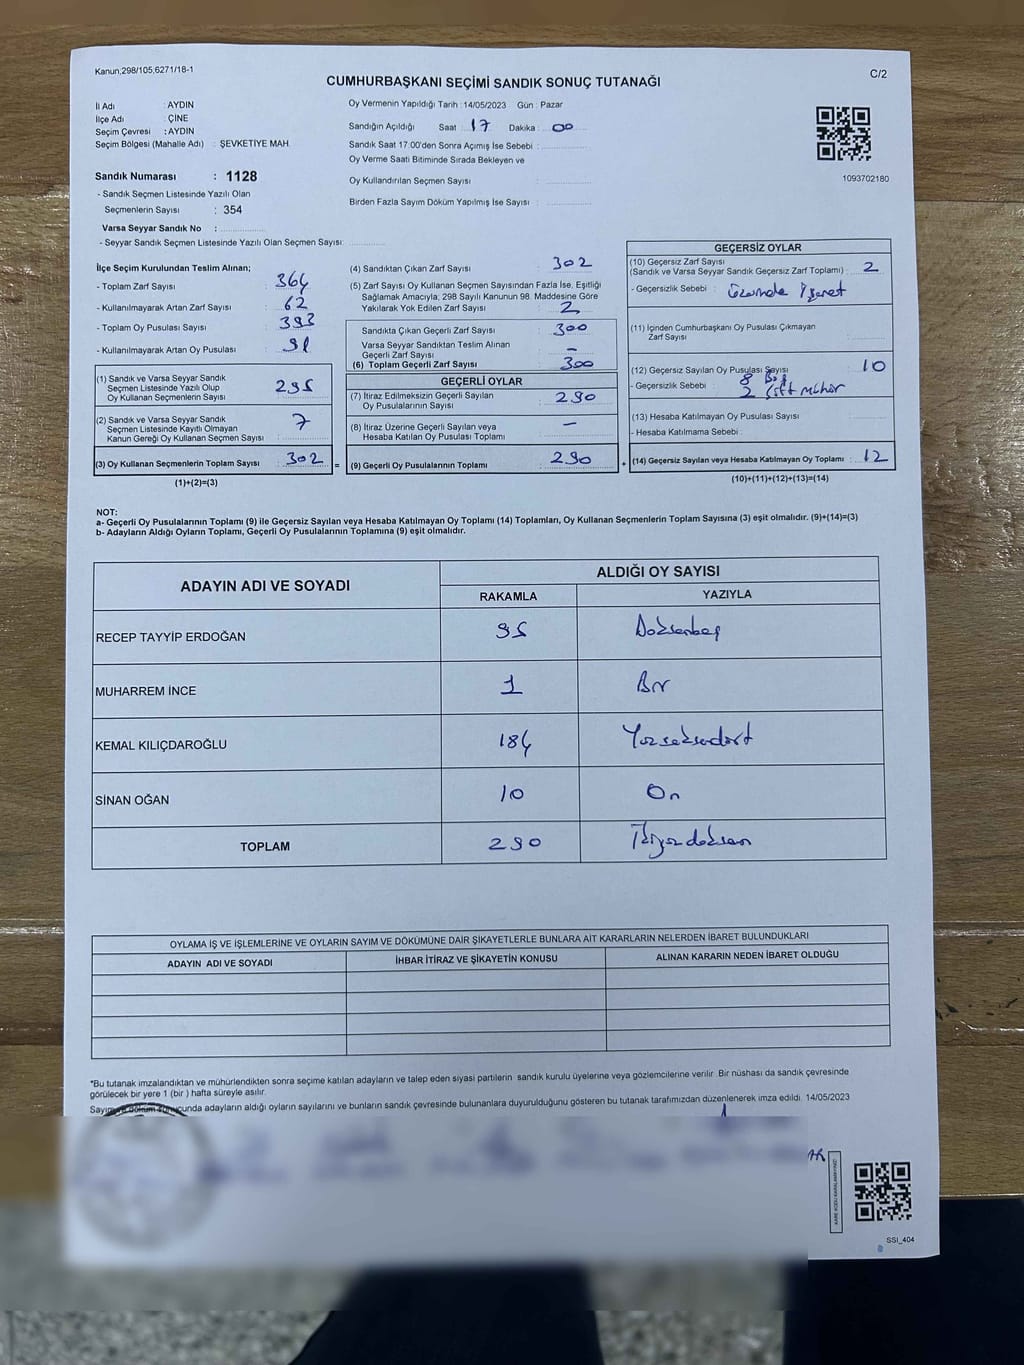 Kanun;298/105,6271/18-1
C/2
CUMHURBAŞKANI SEÇİMİ SANDIK SONUÇ TUTANAĞI
İl Adı : AYDIN
İlçe Adı : ÇİNE
Seçim Çevresi : AYDIN
Seçim Bölgesi (Mahalle Adı) : ŞEVKETİYE MAH.
Sandık Numarası : 1128
- Sandık Seçmen Listesinde Yazılı Olan
Seçmenlerin Sayısı : 354
Varsa Seyyar Sandık No :
- Seyyar Sandık Seçmen Listesinde Yazılı Olan Seçmen Sayısı:
Oy Vermenin Yapıldığı Tarih : 14/05/2023 Gün : Pazar
Sandığın Açıldığı Saat : 17 Dakika : 00
Sandık Saat 17:00'den Sonra Açımış İse Sebebi :
Oy Verme Saati Bitiminde Sırada Bekleyen ve
Oy Kullandırılan Seçmen Sayısı :
Birden Fazla Sayım Döküm Yapılmış İse Sayısı :
1093702180
İlçe Seçim Kurulundan Teslim Alınan;
- Toplam Zarf Sayısı : 364
- Kullanılmayarak Artan Zarf Sayısı : 62
- Toplam Oy Pusulası Sayısı : 393
- Kullanılmayarak Artan Oy Pusulası : 91
(1) Sandık ve Varsa Seyyar Sandık
Seçmen Listesinde Yazılı Olup
Oy Kullanan Seçmenlerin Sayısı : 295
(2) Sandık ve Varsa Seyyar Sandık
Seçmen Listesinde Kayıtlı Olmayan
Kanun Gereği Oy Kullanan Seçmen Sayısı : 7
(3) Oy Kullanan Seçmenlerin Toplam Sayısı : 302
(1)+(2)=(3)
(4) Sandıktan Çıkan Zarf Sayısı : 302
(5) Zarf Sayısı Oy Kullanan Seçmen Sayısından Fazla İse, Eşitliği
Sağlamak Amacıyla; 298 Sayılı Kanunun 98. Maddesine Göre
Yakılarak Yok Edilen Zarf Sayısı : 2
Sandıkta Çıkan Geçerli Zarf Sayısı : 300
Varsa Seyyar Sandıktan Teslim Alınan
Geçerli Zarf Sayısı : —
(6) Toplam Geçerli Zarf Sayısı : 300
=
GEÇERLİ OYLAR
(7) İtiraz Edilmeksizin Geçerli Sayılan
Oy Pusulalarının Sayısı : 290
(8) İtiraz Üzerine Geçerli Sayılan veya
Hesaba Katılan Oy Pusulası Toplamı : —
(9) Geçerli Oy Pusulalarının Toplamı : 290
+
GEÇERSİZ OYLAR
(10) Geçersiz Zarf Sayısı
(Sandık ve Varsa Seyyar Sandık Geçersiz Zarf Toplamı) : 2
- Geçersizlik Sebebi : üzerinde İşaret
(11) İçinden Cumhurbaşkanı Oy Pusulası Çıkmayan
Zarf Sayısı :
(12) Geçersiz Sayılan Oy Pusulası Sayısı : 10
- Geçersizlik Sebebi : 8 Boş
2 Çift mühür
(13) Hesaba Katılmayan Oy Pusulası Sayısı :
- Hesaba Katılmama Sebebi :
(14) Geçersiz Sayılan veya Hesaba Katılmayan Oy Toplamı : 12
(10)+(11)+(12)+(13)=(14)
NOT:
a- Geçerli Oy Pusulalarının Toplamı (9) ile Geçersiz Sayılan veya Hesaba Katılmayan Oy Toplamı (14) Toplamları, Oy Kullanan Seçmenlerin Toplam Sayısına (3) eşit olmalıdır. (9)+(14)=(3)
b- Adayların Aldığı Oyların Toplamı, Geçerli Oy Pusulalarının Toplamına (9) eşit olmalıdır.
ADAYIN ADI VE SOYADI
ALDIĞI OY SAYISI
RAKAMLA YAZIYLA
RECEP TAYYİP ERDOĞAN 95 Doksanbeş
MUHARREM İNCE 1 Bir
KEMAL KILIÇDAROĞLU 184 Yüzseksendört
SİNAN OĞAN 10 On
TOPLAM 290 İkiyüzdoksan
OYLAMA İŞ VE İŞLEMLERİNE VE OYLARIN SAYIM VE DÖKÜMÜNE DAİR ŞİKAYETLERLE BUNLARA AİT KARARLARIN NELERDEN İBARET BULUNDUKLARI
ADAYIN ADI VE SOYADI İHBAR İTİRAZ VE ŞİKAYETİN KONUSU ALINAN KARARIN NEDEN İBARET OLDUĞU
*Bu tutanak imzalandıktan ve mühürlendikten sonra seçime katılan adayların ve talep eden siyasi partilerin sandık kurulu üyelerine veya gözlemcilerine verilir. Bir nüshası da sandık çevresinde
görülecek bir yere 1 (bir) hafta süreyle asılır.
Sayım ve döküm sonucunda adayların aldığı oyların sayılarını ve bunların sandık çevresinde bulunanlara duyurulduğunu gösteren bu tutanak tarafımızdan düzenlenerek imza edildi. 14/05/2023
KARE KODU KARALAMAYINIZ!
SSI_404